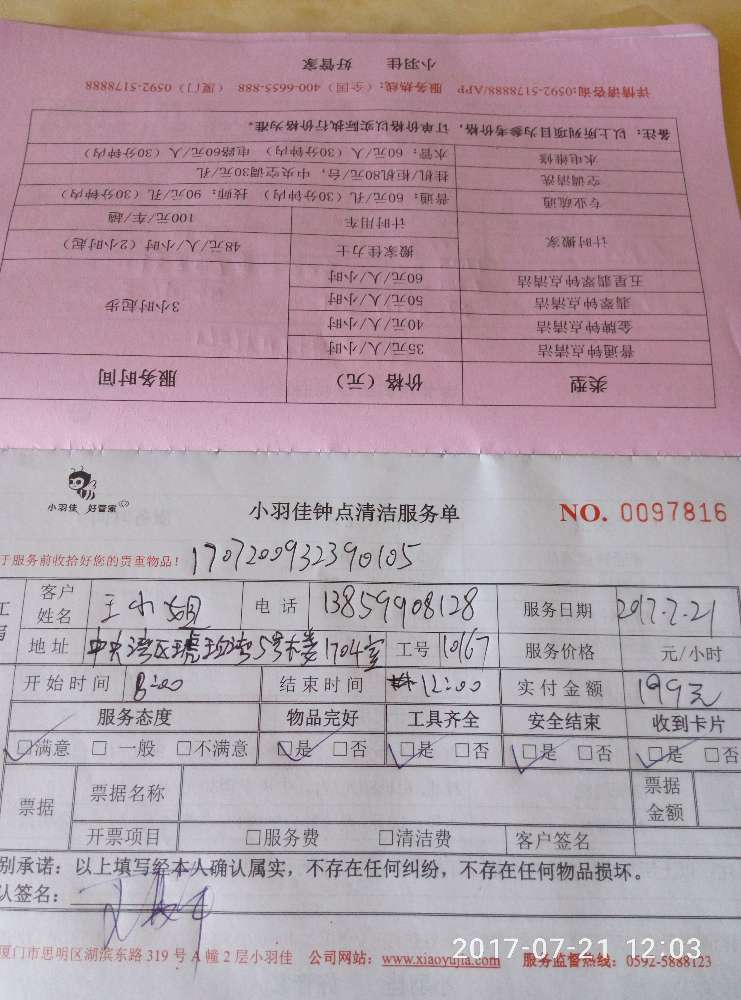 小羽佳 好管家
详情请咨询:0592-5178888/APP 服务热线:（全国）400-6655-888 （厦门）0592-5178888
备注：以上所列项目为参考价格，订单价格以实际执行价格为准。
水电维修 水管：60元/人（30分钟内） 电路60元/人（30分钟内）
空调清洗 挂机/柜机80元/台，中央空调30元/孔
专业疏通 普通：60元/孔（30分钟内） 技师：90元/孔（30分钟内）
计时搬家 计时用车 100元/车/趟
搬家佳力士 48元/人/小时（2小时起）
五星翡翠钟点清洁 60元/人/小时 3小时起步
翡翠钟点清洁 50元/人/小时
金牌钟点清洁 40元/人/小时
普通钟点清洁 35元/人/小时
类型 价格（元） 服务时间
小羽佳 好管家
小羽佳钟点清洁服务单 NO. 0097816
于服务前收拾好您的贵重物品！ 1707200932390105
客户姓名 王小姐 电话 13859908128 服务日期 2017.7.21
地址 中央湾区琥珀湾5号楼1704室 工号 10167 服务价格 元/小时
开始时间 8:00 结束时间 12:00 实付金额 199元
服务态度 物品完好 工具齐全 安全结束 收到卡片
□满意 □一般 □不满意 □是 □否 □是 □否 □是 □否 □是 □否
票据 票据名称 票据金额
开票项目 □服务费 □清洁费 客户签名
别承诺：以上填写经本人确认属实，不存在任何纠纷，不存在任何物品损坏。
认签名：
厦门市思明区湖滨东路 319 号 A 幢 2 层小羽佳 公司网站：www.xiaoyujia.com 服务监督热线：0592-5888123
2017-07-21 12:03